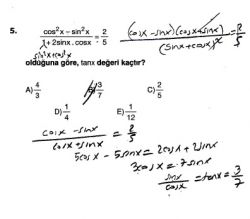 5. cos²x - sin²x / 1 + 2sinx . cosx = 2/5
(cosx - sinx)(cosx + sinx) / (sinx + cosx)² = 2/5
sin²x + cos²x
olduğuna göre, tanx değeri kaçtır?
A) 4/3 B) 3/7 C) 2/5
D) 1/4 E) 1/12
cosx - sinx / cosx + sinx = 2/5
5cosx - 5sinx = 2cosx + 2sinx
3cosx = 7sinx
sinx / cosx = tanx = 3/7